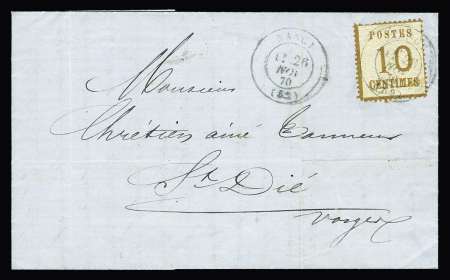 NANCY
26
NOV
70
POSTES
10
CENTIMES
Monsieur
Chrétien ainé Tanneur
St Dié
Vosges